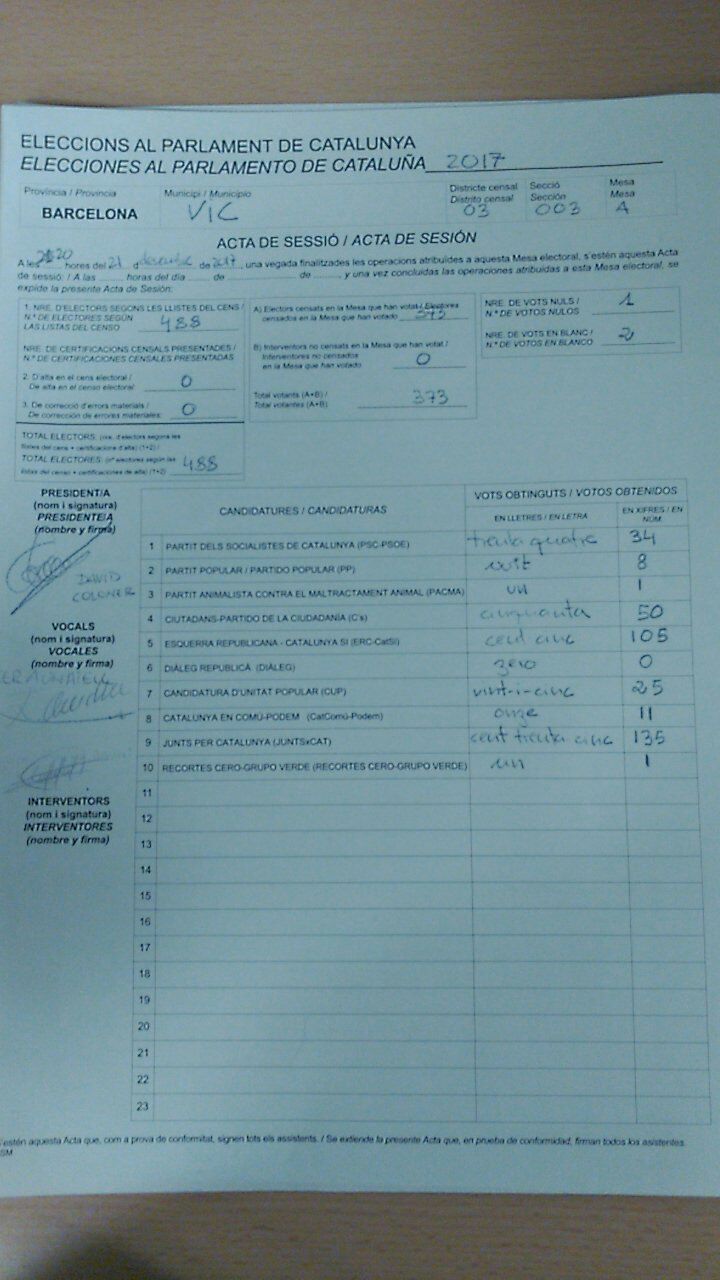 ELECCIONS AL PARLAMENT DE CATALUNYA
ELECCIONES AL PARLAMENTO DE CATALUÑA 2017
Província / Provincia Municipi / Municipio Districte censal Secció Mesa
Distrito censal Sección Mesa
BARCELONA VIC 03 003 A
ACTA DE SESSIÓ / ACTA DE SESIÓN
A les 20 hores del 21 d desembre de 2017, una vegada finalitzades les operacions atribuïdes a aquesta Mesa electoral, s'estén aquesta Acta
de sessió: / A las horas del día de de , y una vez concluidas las operaciones atribuidas a esta Mesa electoral, se
expide la presente Acta de Sesión:
1. NRE. D'ELECTORS SEGONS LES LLISTES DEL CENS /
N.º DE ELECTORES SEGÚN
LAS LISTAS DEL CENSO 488
NRE. DE CERTIFICACIONS CENSALS PRESENTADES /
N.º DE CERTIFICACIONES CENSALES PRESENTADAS
2. D'alta en el cens electoral /
De alta en el censo electoral: 0
3. De correcció d'errors materials /
De corrección de errores materiales: 0
TOTAL ELECTORS: (nre. d'electors segons les
llistes del cens + certificacions d'alta) (1+2) /
TOTAL ELECTORES: (nº electores según las
listas del censo + certificaciones de alta) (1+2) 488
A) Electors censats en la Mesa que han votat / Electores
censados en la Mesa que han votado 373
B) Interventors no censats en la Mesa que han votat /
Interventores no censados
en la Mesa que han votado 0
Total votants (A+B) /
Total votantes (A+B) 373
NRE. DE VOTS NULS /
N.º DE VOTOS NULOS 1
NRE. DE VOTS EN BLANC /
N.º DE VOTOS EN BLANCO 2
PRESIDENT/A
(nom i signatura)
PRESIDENTE/A
(nombre y firma)
DAVID
COLOMER
VOCALS
(nom i signatura)
VOCALES
(nombre y firma)
INTERVENTORS
(nom i signatura)
INTERVENTORES
(nombre y firma)
CANDIDATURES / CANDIDATURAS VOTS OBTINGUTS / VOTOS OBTENIDOS
EN LLETRES / EN LETRA EN XIFRES / EN NÚM.
1 PARTIT DELS SOCIALISTES DE CATALUNYA (PSC-PSOE) trenta quatre 34
2 PARTIT POPULAR / PARTIDO POPULAR (PP) vuit 8
3 PARTIT ANIMALISTA CONTRA EL MALTRACTAMENT ANIMAL (PACMA) un 1
4 CIUTADANS-PARTIDO DE LA CIUDADANÍA (C's) cinquanta 50
5 ESQUERRA REPUBLICANA - CATALUNYA SI (ERC-CatSí) cent cinc 105
6 DIÀLEG REPUBLICÀ (DIÀLEG) zero 0
7 CANDIDATURA D'UNITAT POPULAR (CUP) vint-i-cinc 25
8 CATALUNYA EN COMÚ-PODEM (CatComú-Podem) onze 11
9 JUNTS PER CATALUNYA (JUNTSxCAT) cent trenta cinc 135
10 RECORTES CERO-GRUPO VERDE (RECORTES CERO-GRUPO VERDE) un 1
11
12
13
14
15
16
17
18
19
20
21
22
23
s'estén aquesta Acta que, com a prova de conformitat, signen tots els assistents. / Se extiende la presente Acta que, en prueba de conformidad, firman todos los asistentes.
SM